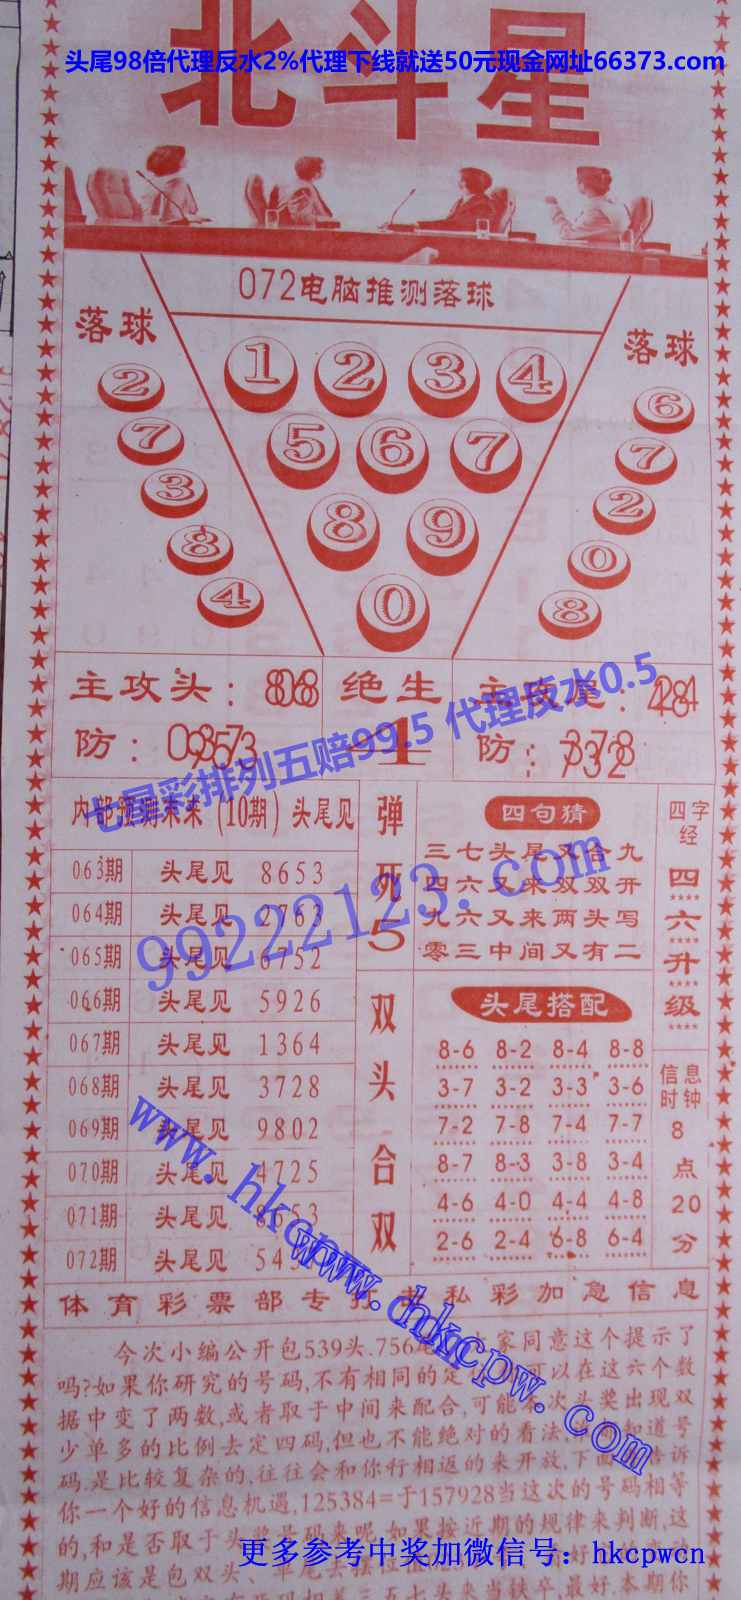 头尾98倍代理反水2%代理下线就送50元现金网址66373.com
北斗星
072电脑推测落球
落球
落球
1 2 3 4
5 6 7
8 9
0
2
7
3
8
4
6
7
2
0
8
主攻头:
绝生
4
防:
防:
七星彩排列五赔99.5 代理反水0.5
内部预测未来(10期)头尾见
063期 头尾见 8653
064期 头尾见 2763
065期 头尾见 6752
066期 头尾见 5926
067期 头尾见 1364
068期 头尾见 3728
069期 头尾见 9802
070期 头尾见 4725
071期 头尾见 8653
072期 头尾见
弹死5
双头合双
四句猜
三七头尾又合九
四六又来双双开
九六又来两头写
零三中间又有二
头尾搭配
8-6 8-2 8-4 8-8
3-7 3-2 3-3 3-6
7-2 7-8 7-4 7-7
8-7 8-3 3-8 3-4
4-6 4-0 4-4 4-8
2-6 2-4 6-8 6-4
四字经
四六升级
信息时钟
8点20分
99222123.com
www.hkcpw.com
www.hkcpw.com
体育彩票部专 私彩加急信息
今次小编公开包539头.756 家同意这个提示了
吗?如果你研究的号码,不有相同的定 可以在这六个数
据中变了两数,或者取于中间来配合,可能本次头奖出现双
少单多的比例去定四码,但也不能绝对的看法, 知道号
码,是比较复杂的,往往会和你行相返的来开放,下面 告诉
你一个好的信息机遇,125384=于157928当这次的号码相等
的,和是否取于头奖 码来呢,如果按近期的规律来判断,这
期应该是包双头
更多参考中奖加微信号：hkcpwcn